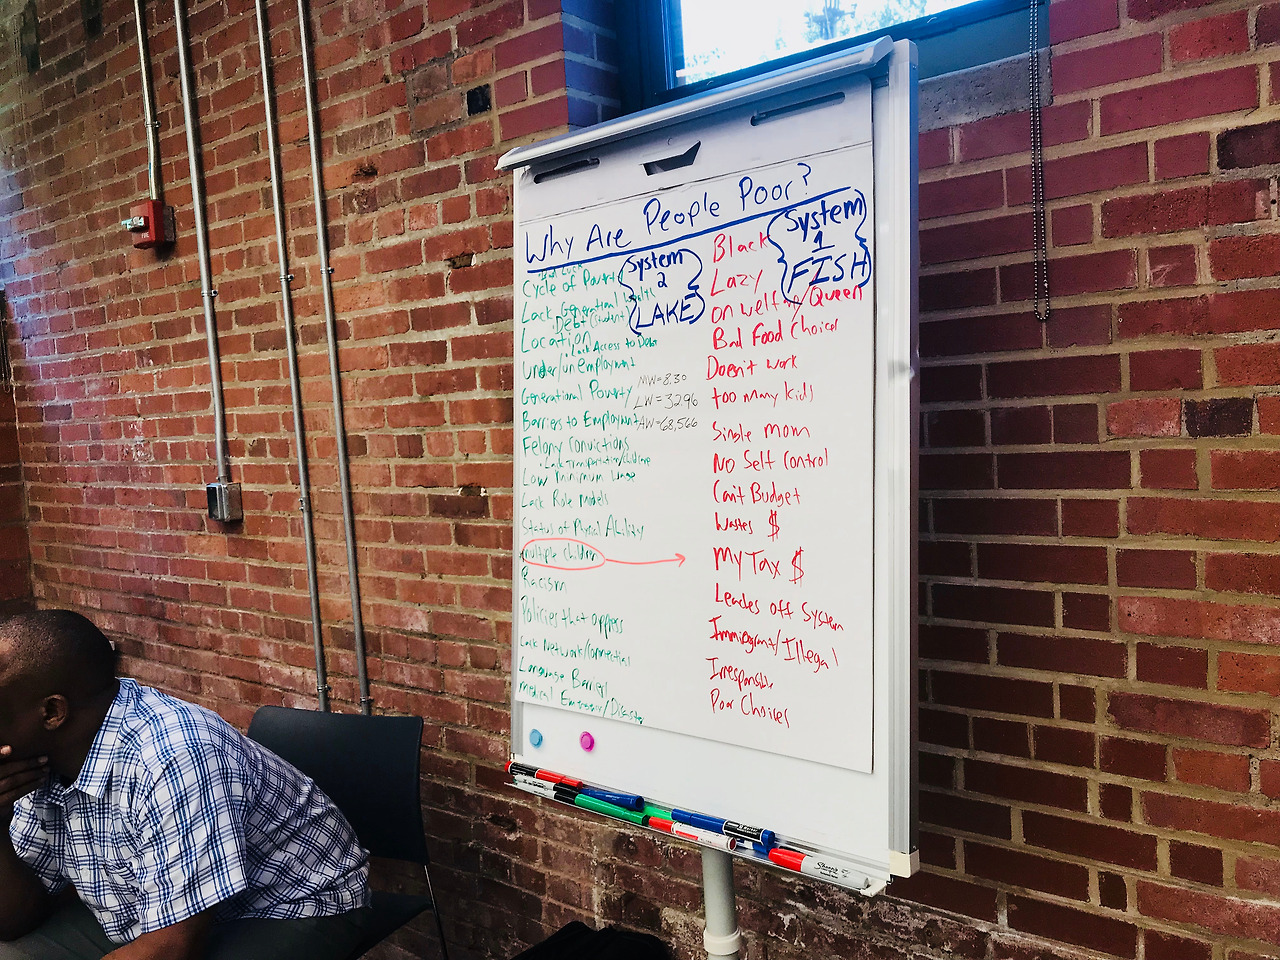 Why Are People Poor?
System
2
LAKE
Bad Luck
Cycle of Poverty
Lack Generational Wealth
Debt (Student)
Location
Lack Access to Debt
Under/unemployment
Generational Poverty
Barriers to Employment
MW=8.30
LW=32.96
AW=68,566
Felony Convictions
Lack Transportation/childcare
Low Minimum Wage
Lack Role Models
Status of Physical Ability
Multiple children
Racism
Policies that oppress
Lack Network/Connection
Language Barrier/
Medical Emergency/Disaster
System
1
FISH
Black
Lazy
on welfare/Queen
Bad Food Choices
Doesn't work
too many kids
Single Mom
No Self Control
Can't Budget
Wastes $
My Tax $
Leaches off System
Immigrant/Illegal
Irresponsible
Poor Choices
FIRE
Sharpie